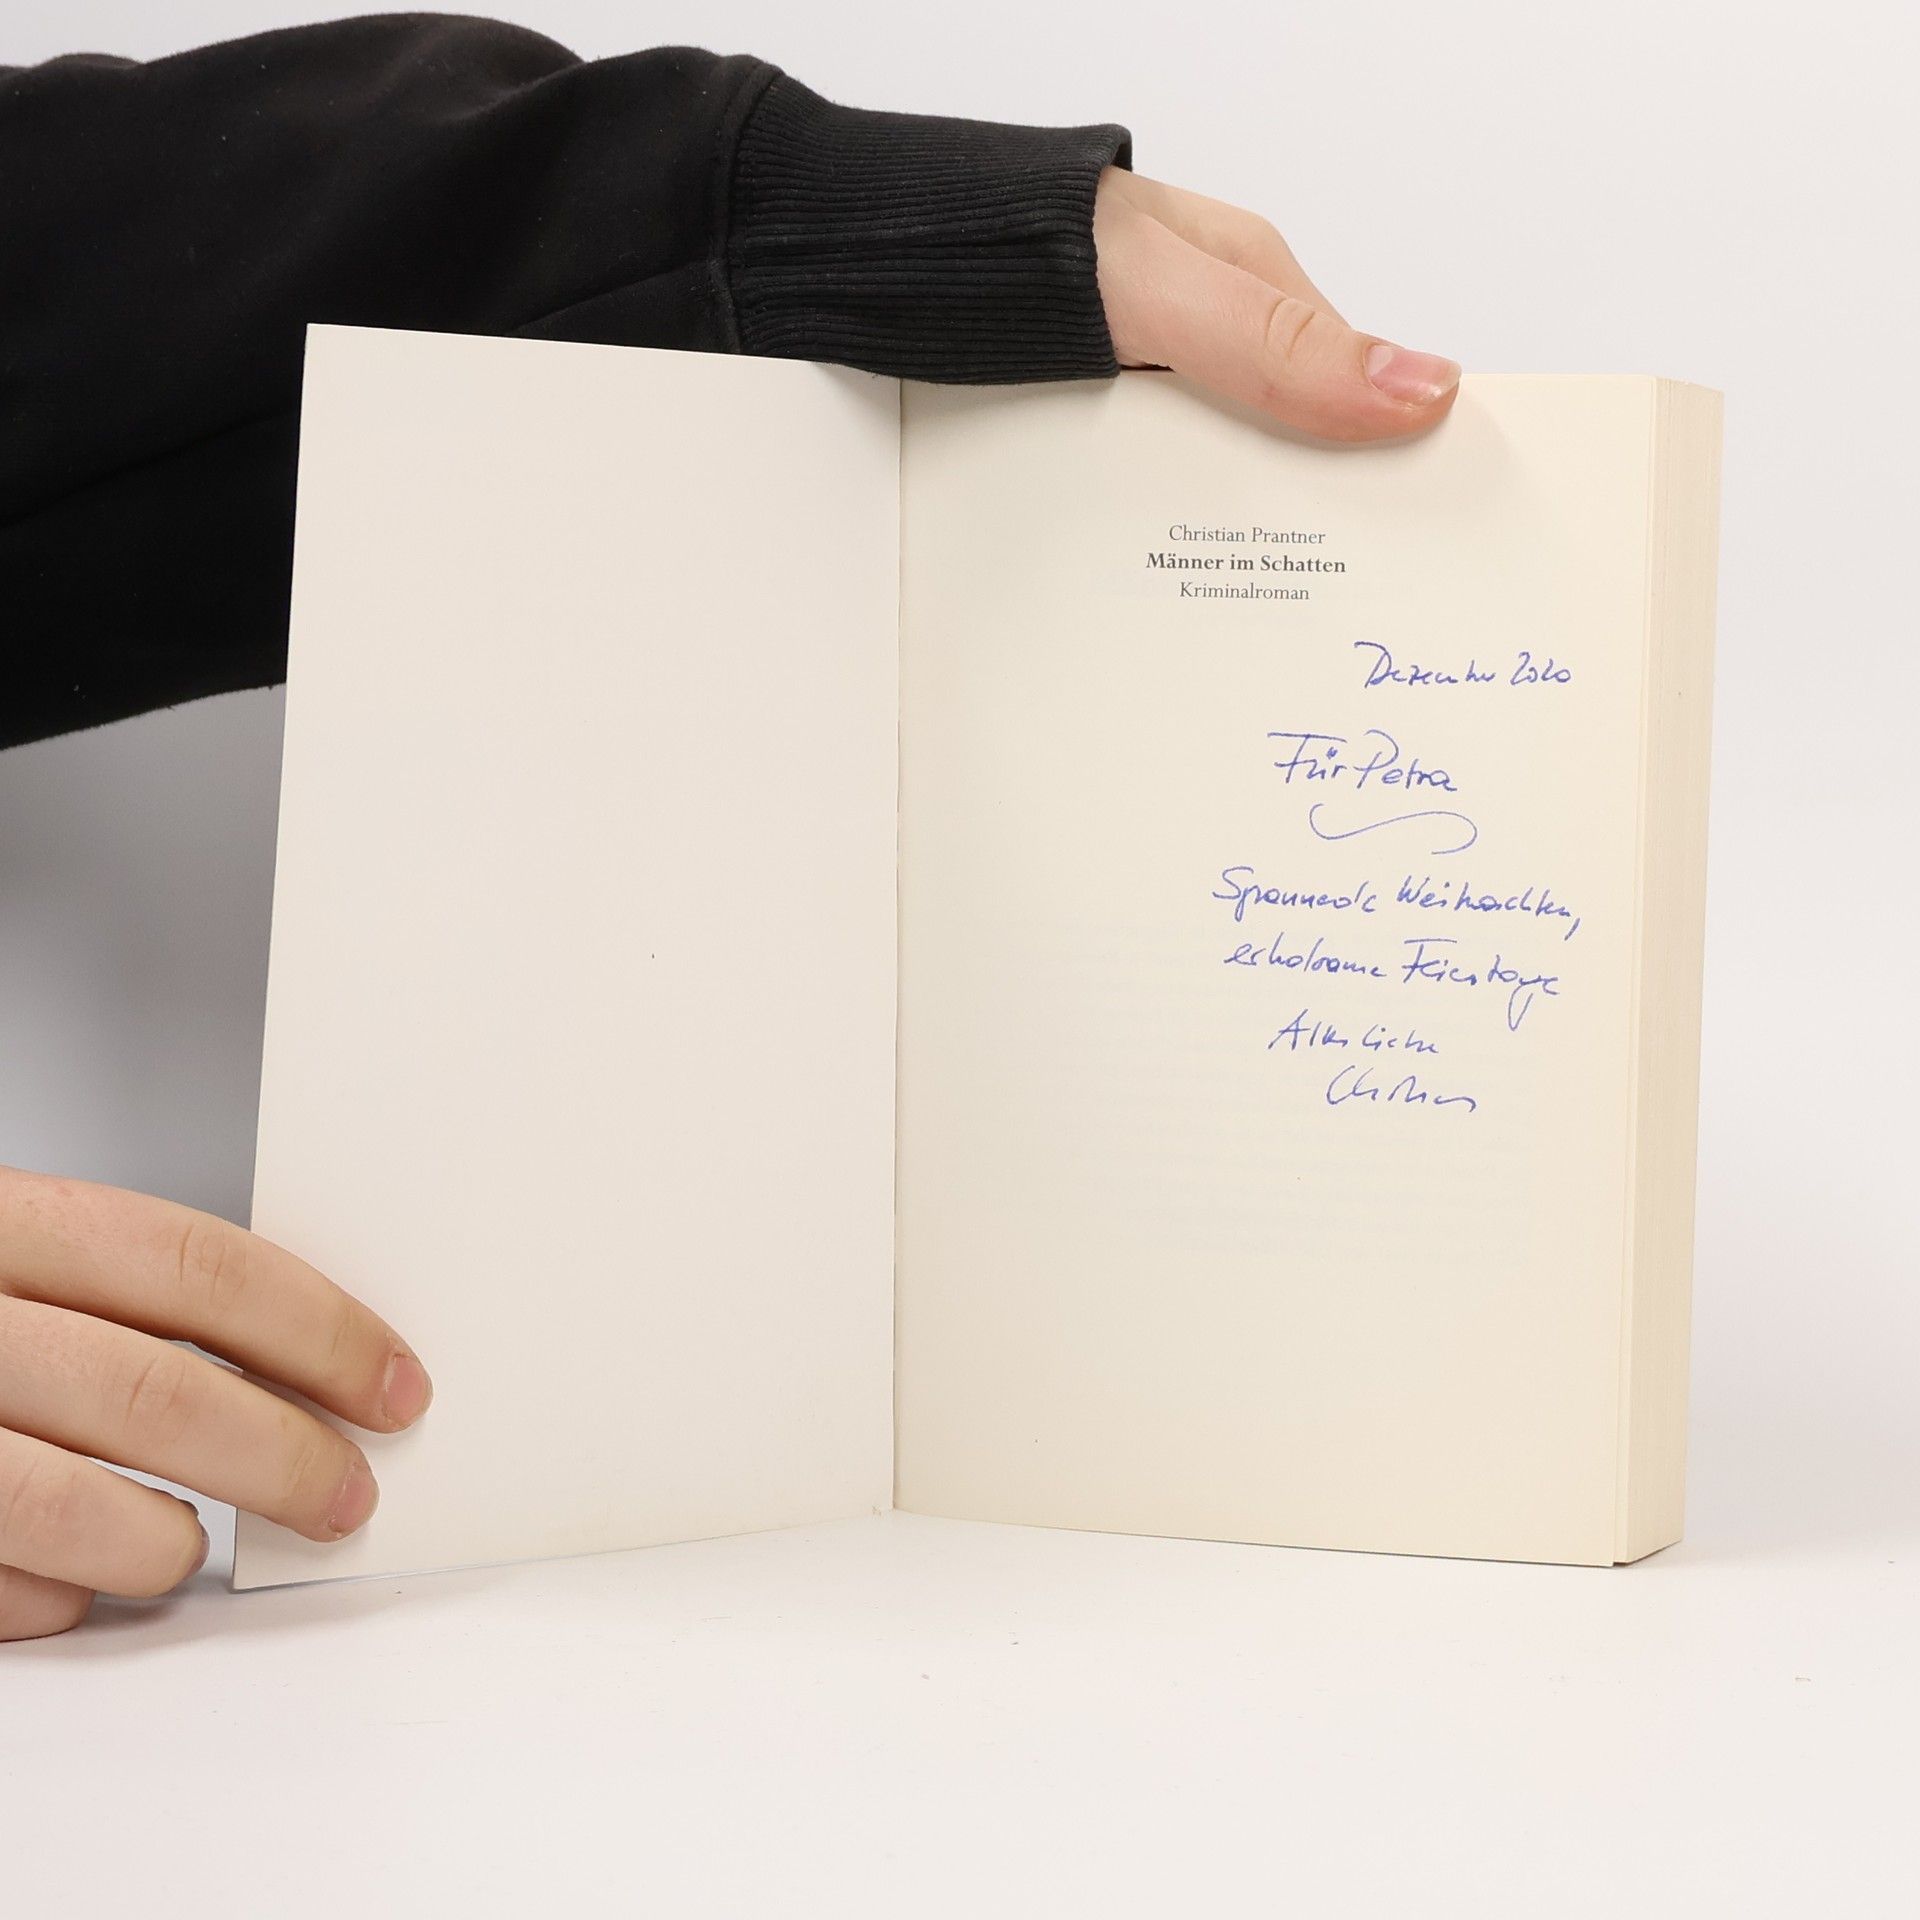 Christian Prantner
Männer im Schatten
Kriminalroman
Dezember 2020
Für Petra
Spannende Weihnachten,
erholsame Feiertage
Alles Liebe
Christian